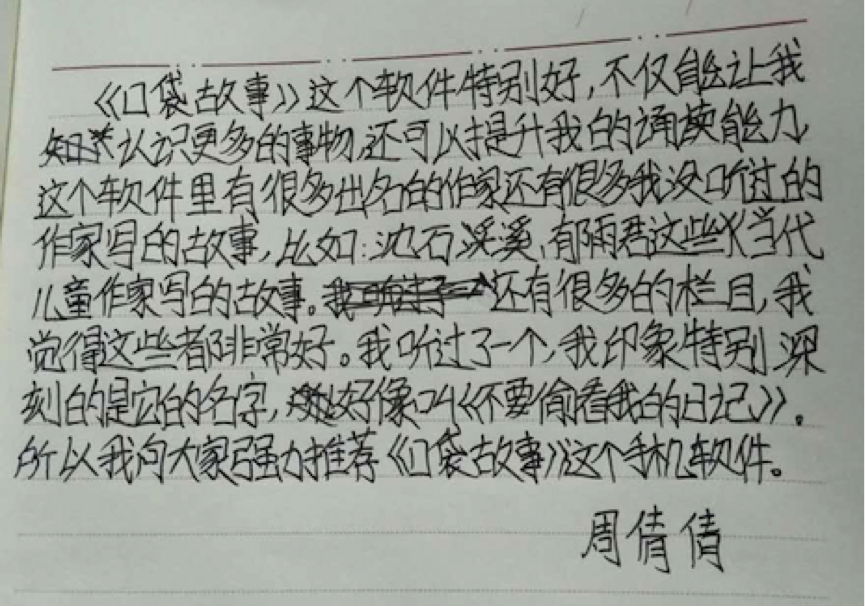 《口袋故事》这个软件特别好,不仅能让我
认识更多的事物,还可以提升我的诵读能力,
这个软件里有很多出名的作家还有很多我没听过的
作家写的故事,比如:沈石溪、郁雨君这些当代
儿童作家写的故事。还有很多的栏目,我
觉得这些都非常好。我听过了一个,我印象特别深
刻的是它的名字,好像叫《不要偷看我的日记》。
所以我向大家强力推荐《口袋故事》这个手机软件。
周倩倩